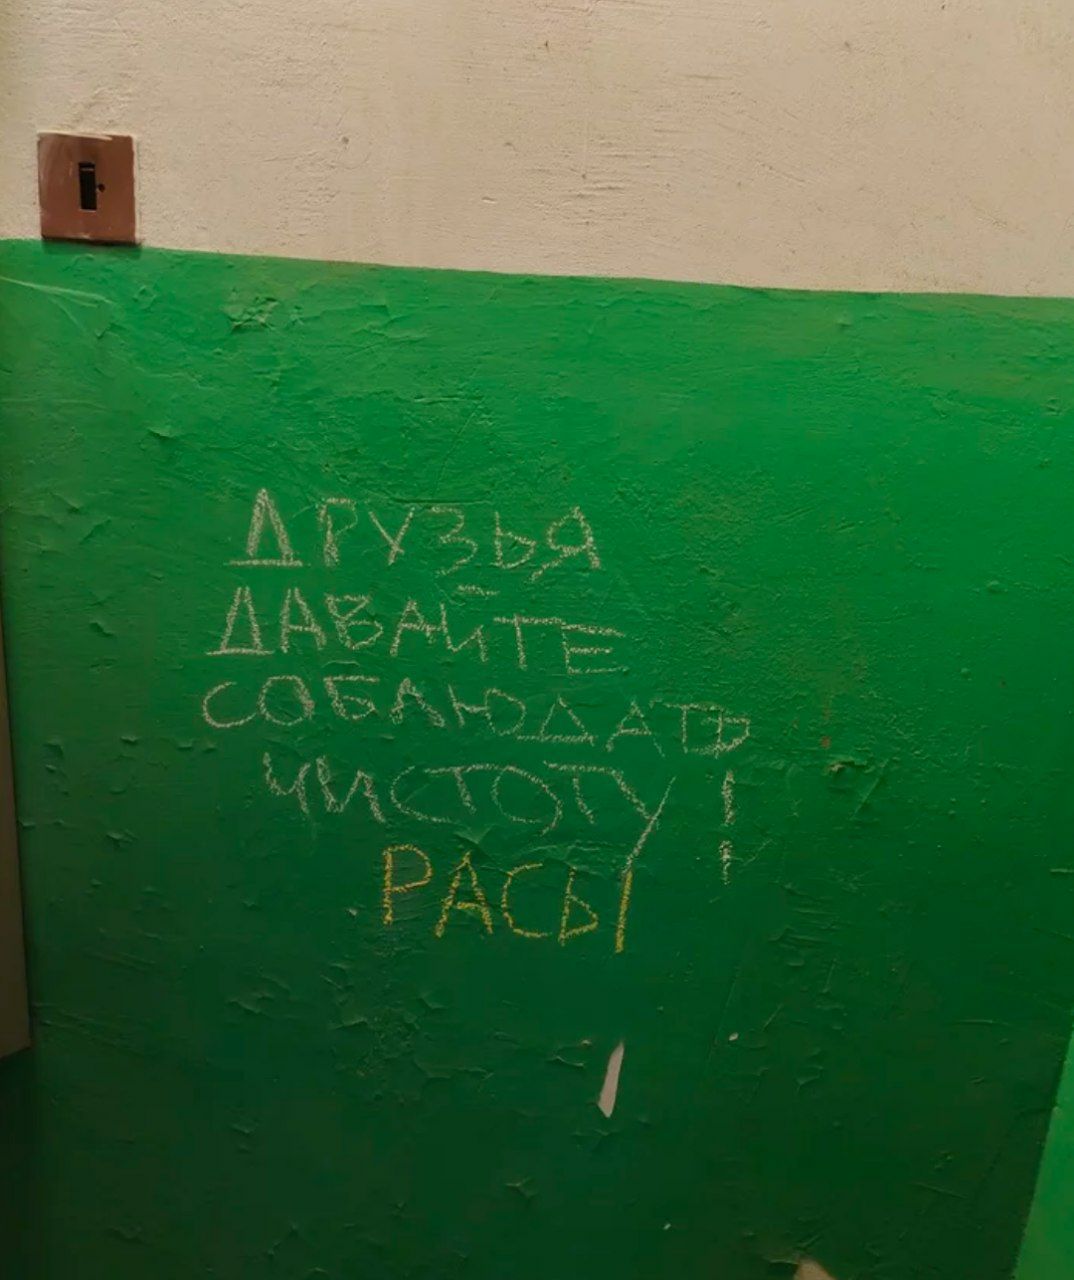 ДРУЗЬЯ
ДАВАЙТЕ
СОБЛЮДАТЬ
ЧИСТОТУ!
РАСЫ